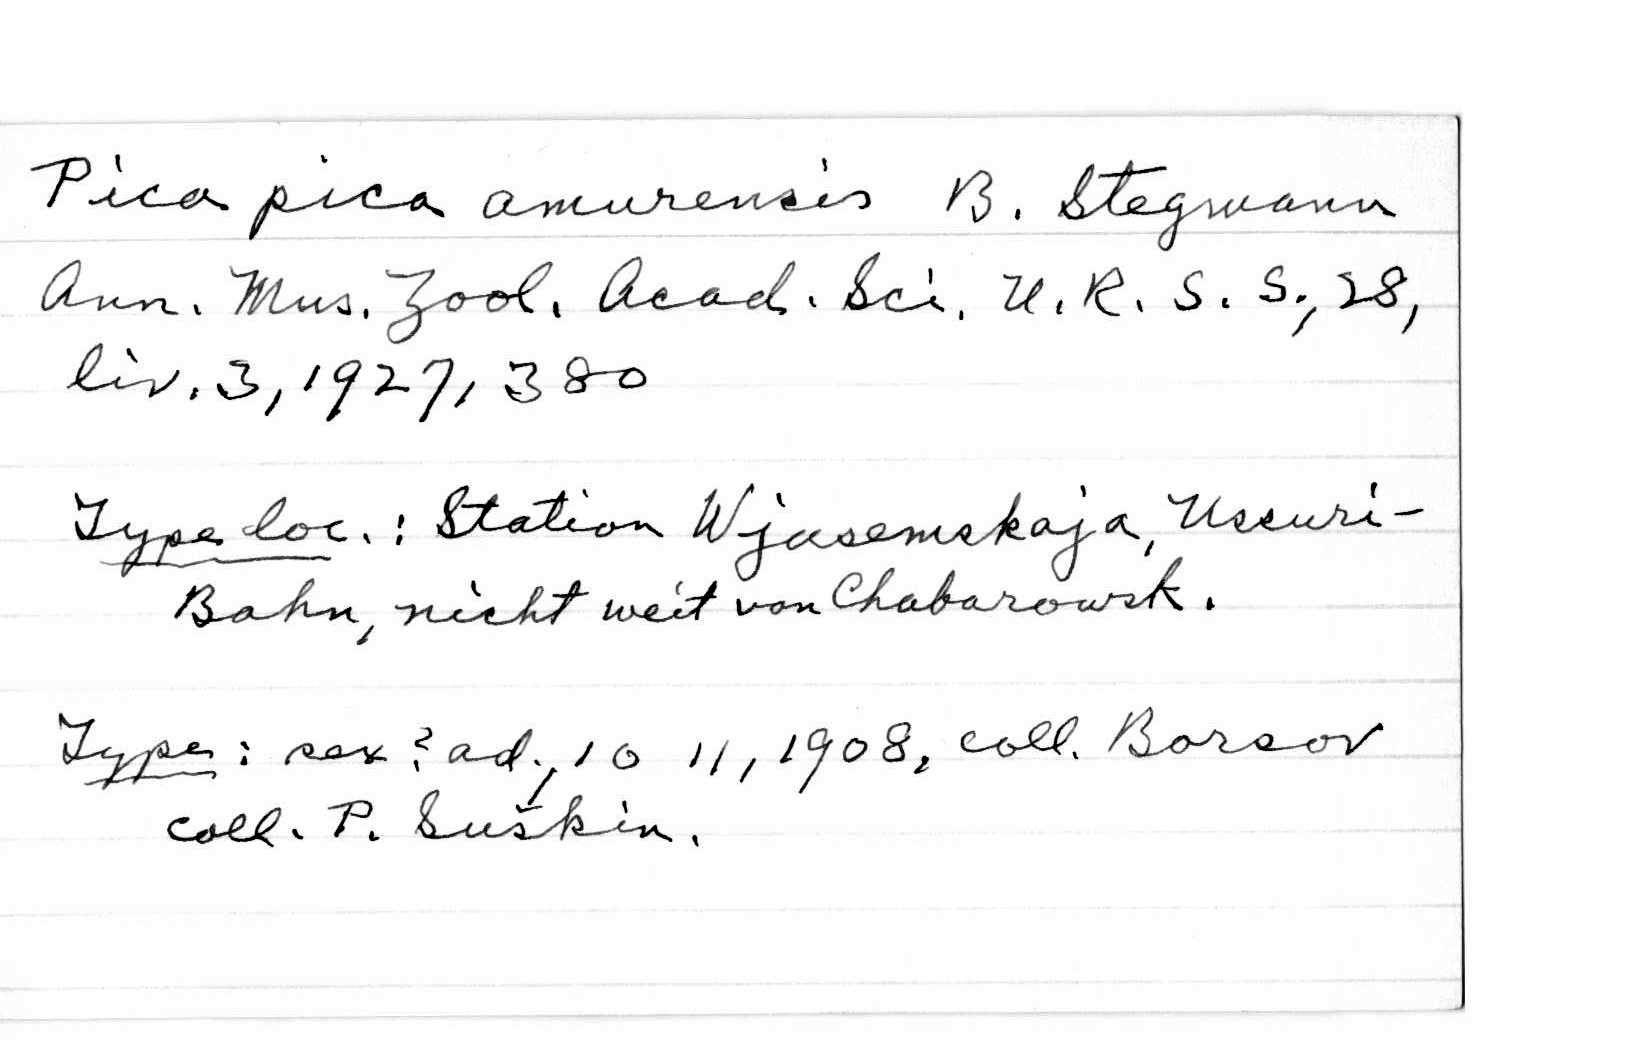 Pica pica amurensis B. Stegmann
Ann. Mus. Zool. Acad. Sci. U.R.S.S., 28,
liv. 3, 1927, 380
Type loc.: Station Wjasemskaja, Ussuri-
Bahn, nicht weit von Chabarowsk.
Type: sex? ad., 10 11, 1908, coll. Borsov
coll. P. Suškin.